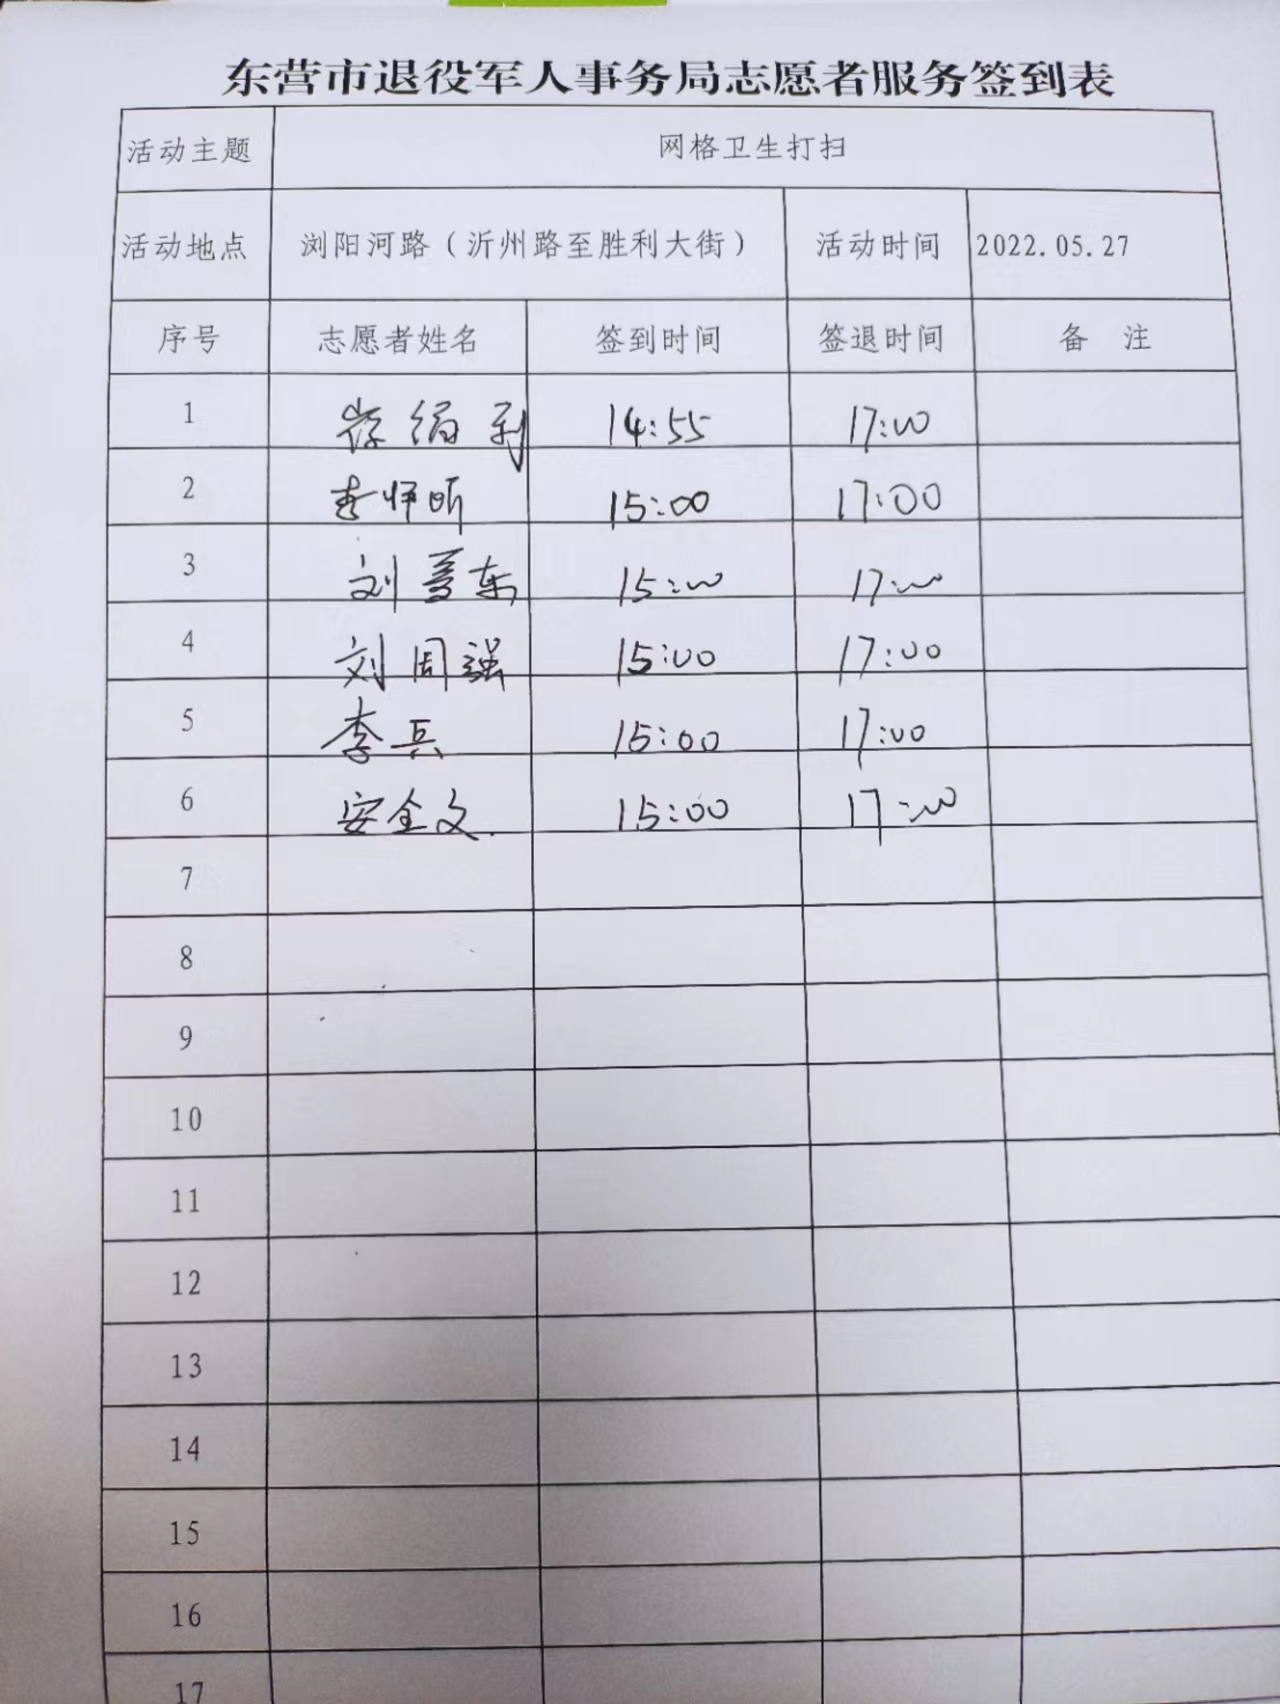 东营市退役军人事务局志愿者服务签到表
活动主题 网格卫生打扫
活动地点 浏阳河路（沂州路至胜利大街） 活动时间 2022.05.27
序号 志愿者姓名 签到时间 签退时间 备 注
1 14:55 17:00
2 李师昕 15:00 17:00
3 刘 东 15:00 17:00
4 刘周强 15:00 17:00
5 李兵 15:00 17:00
6 安全文 15:00 17:00
7
8
9
10
11
12
13
14
15
16
17